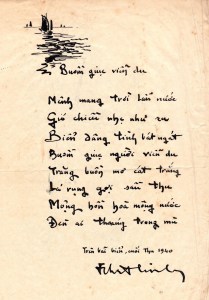 Buồn giục viễn du
Mênh mang trời lẫn nước
Gió chiều nhẹ như ru
Biển dâng tình bát ngát
Buồn giục người viễn du
Trăng buồn mơ cát trắng
Lá rụng gợi sầu thu
Mộng hồn hòa mong nước
Đến ai thương trong mù
Trên bãi biển, cuối Thu 1940